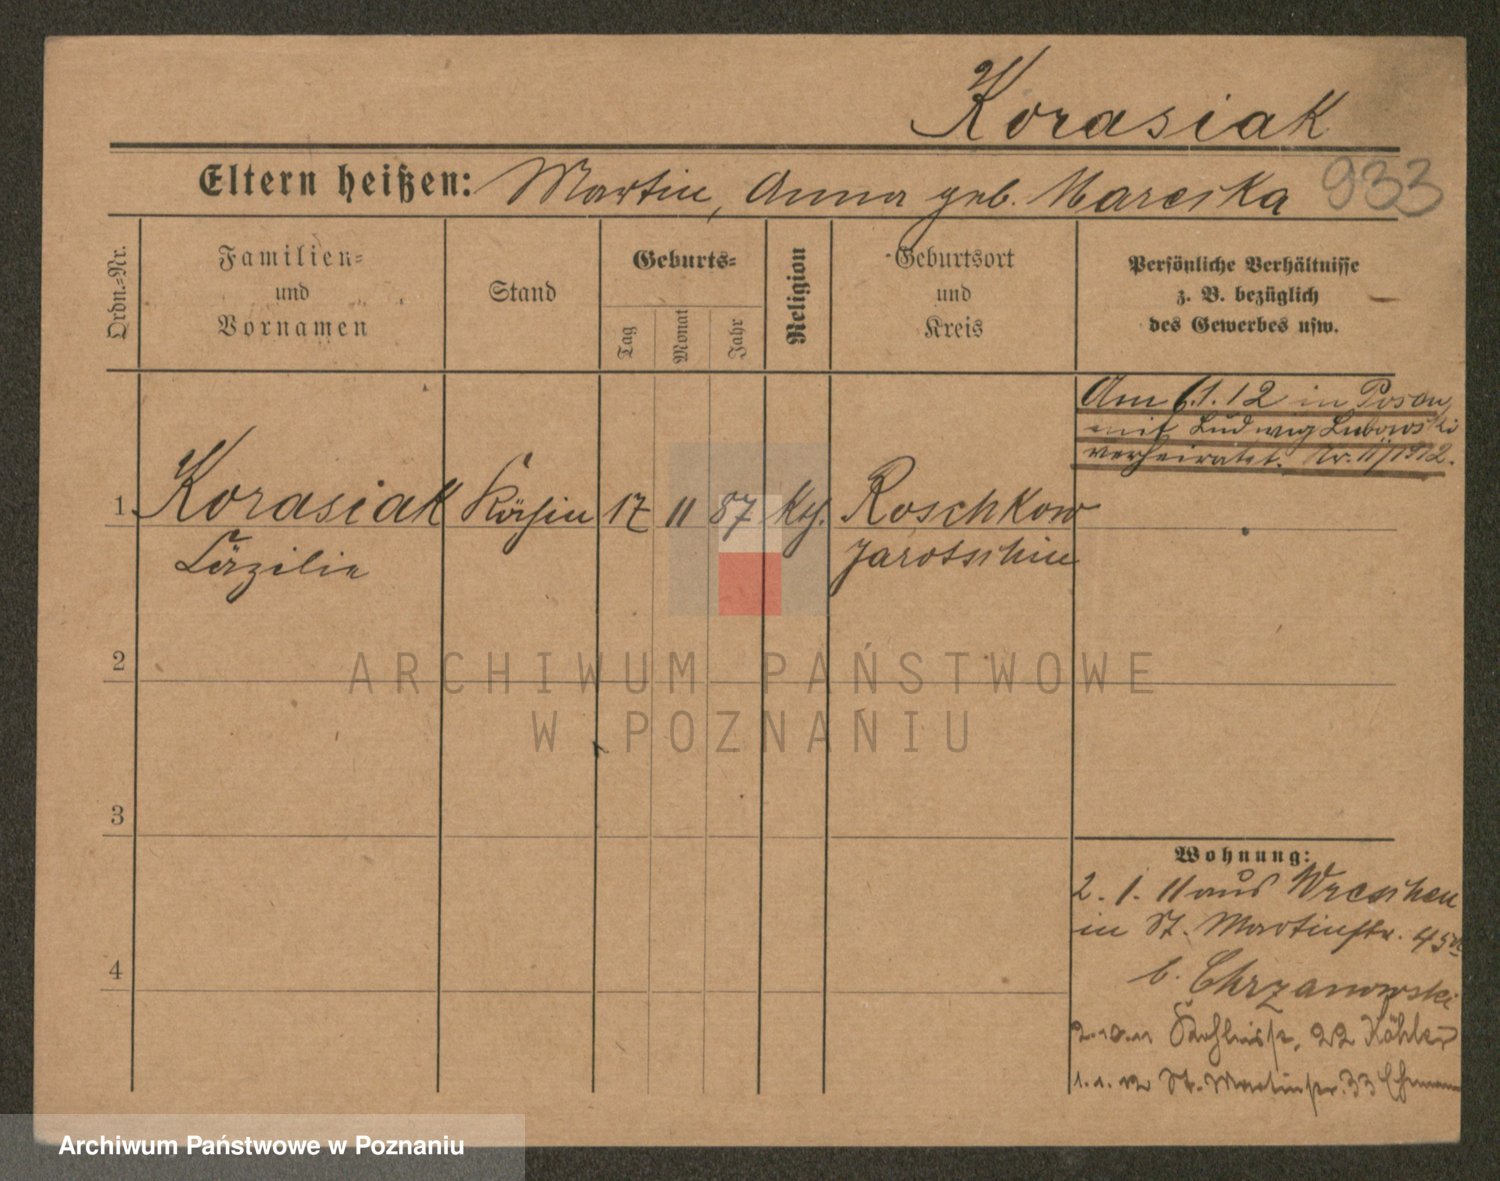 Korasiak
Eltern heißen: Martin, Anna geb. Marciska
933
Ordn.-Nr.
Familien-
und
Vornamen
Stand
Geburts-
Tag
Monat
Jahr
Religion
Geburtsort
und
Kreis
Persönliche Verhältnisse
z. B. bezüglich
des Gewerbes usw.
Am 6.1.12 in Posen
mit Ludwig Lubowski
verheiratet. Nr. 11/1912.
1 Korasiak Köchin 17 11 87 kth. Roschkow
Cäzilie Jarotschin
2
3
4
Wohnung:
2. 1. 11 aus Wreschen
in St. Martinstr. 45
b. Chrzanowski
2.10.11 22 Köhler
1.1.12 St. Martinstr. 33 Ehemann
ARCHIWUM PAŃSTWOWE
W POZNANIU
Archiwum Państwowe w Poznaniu